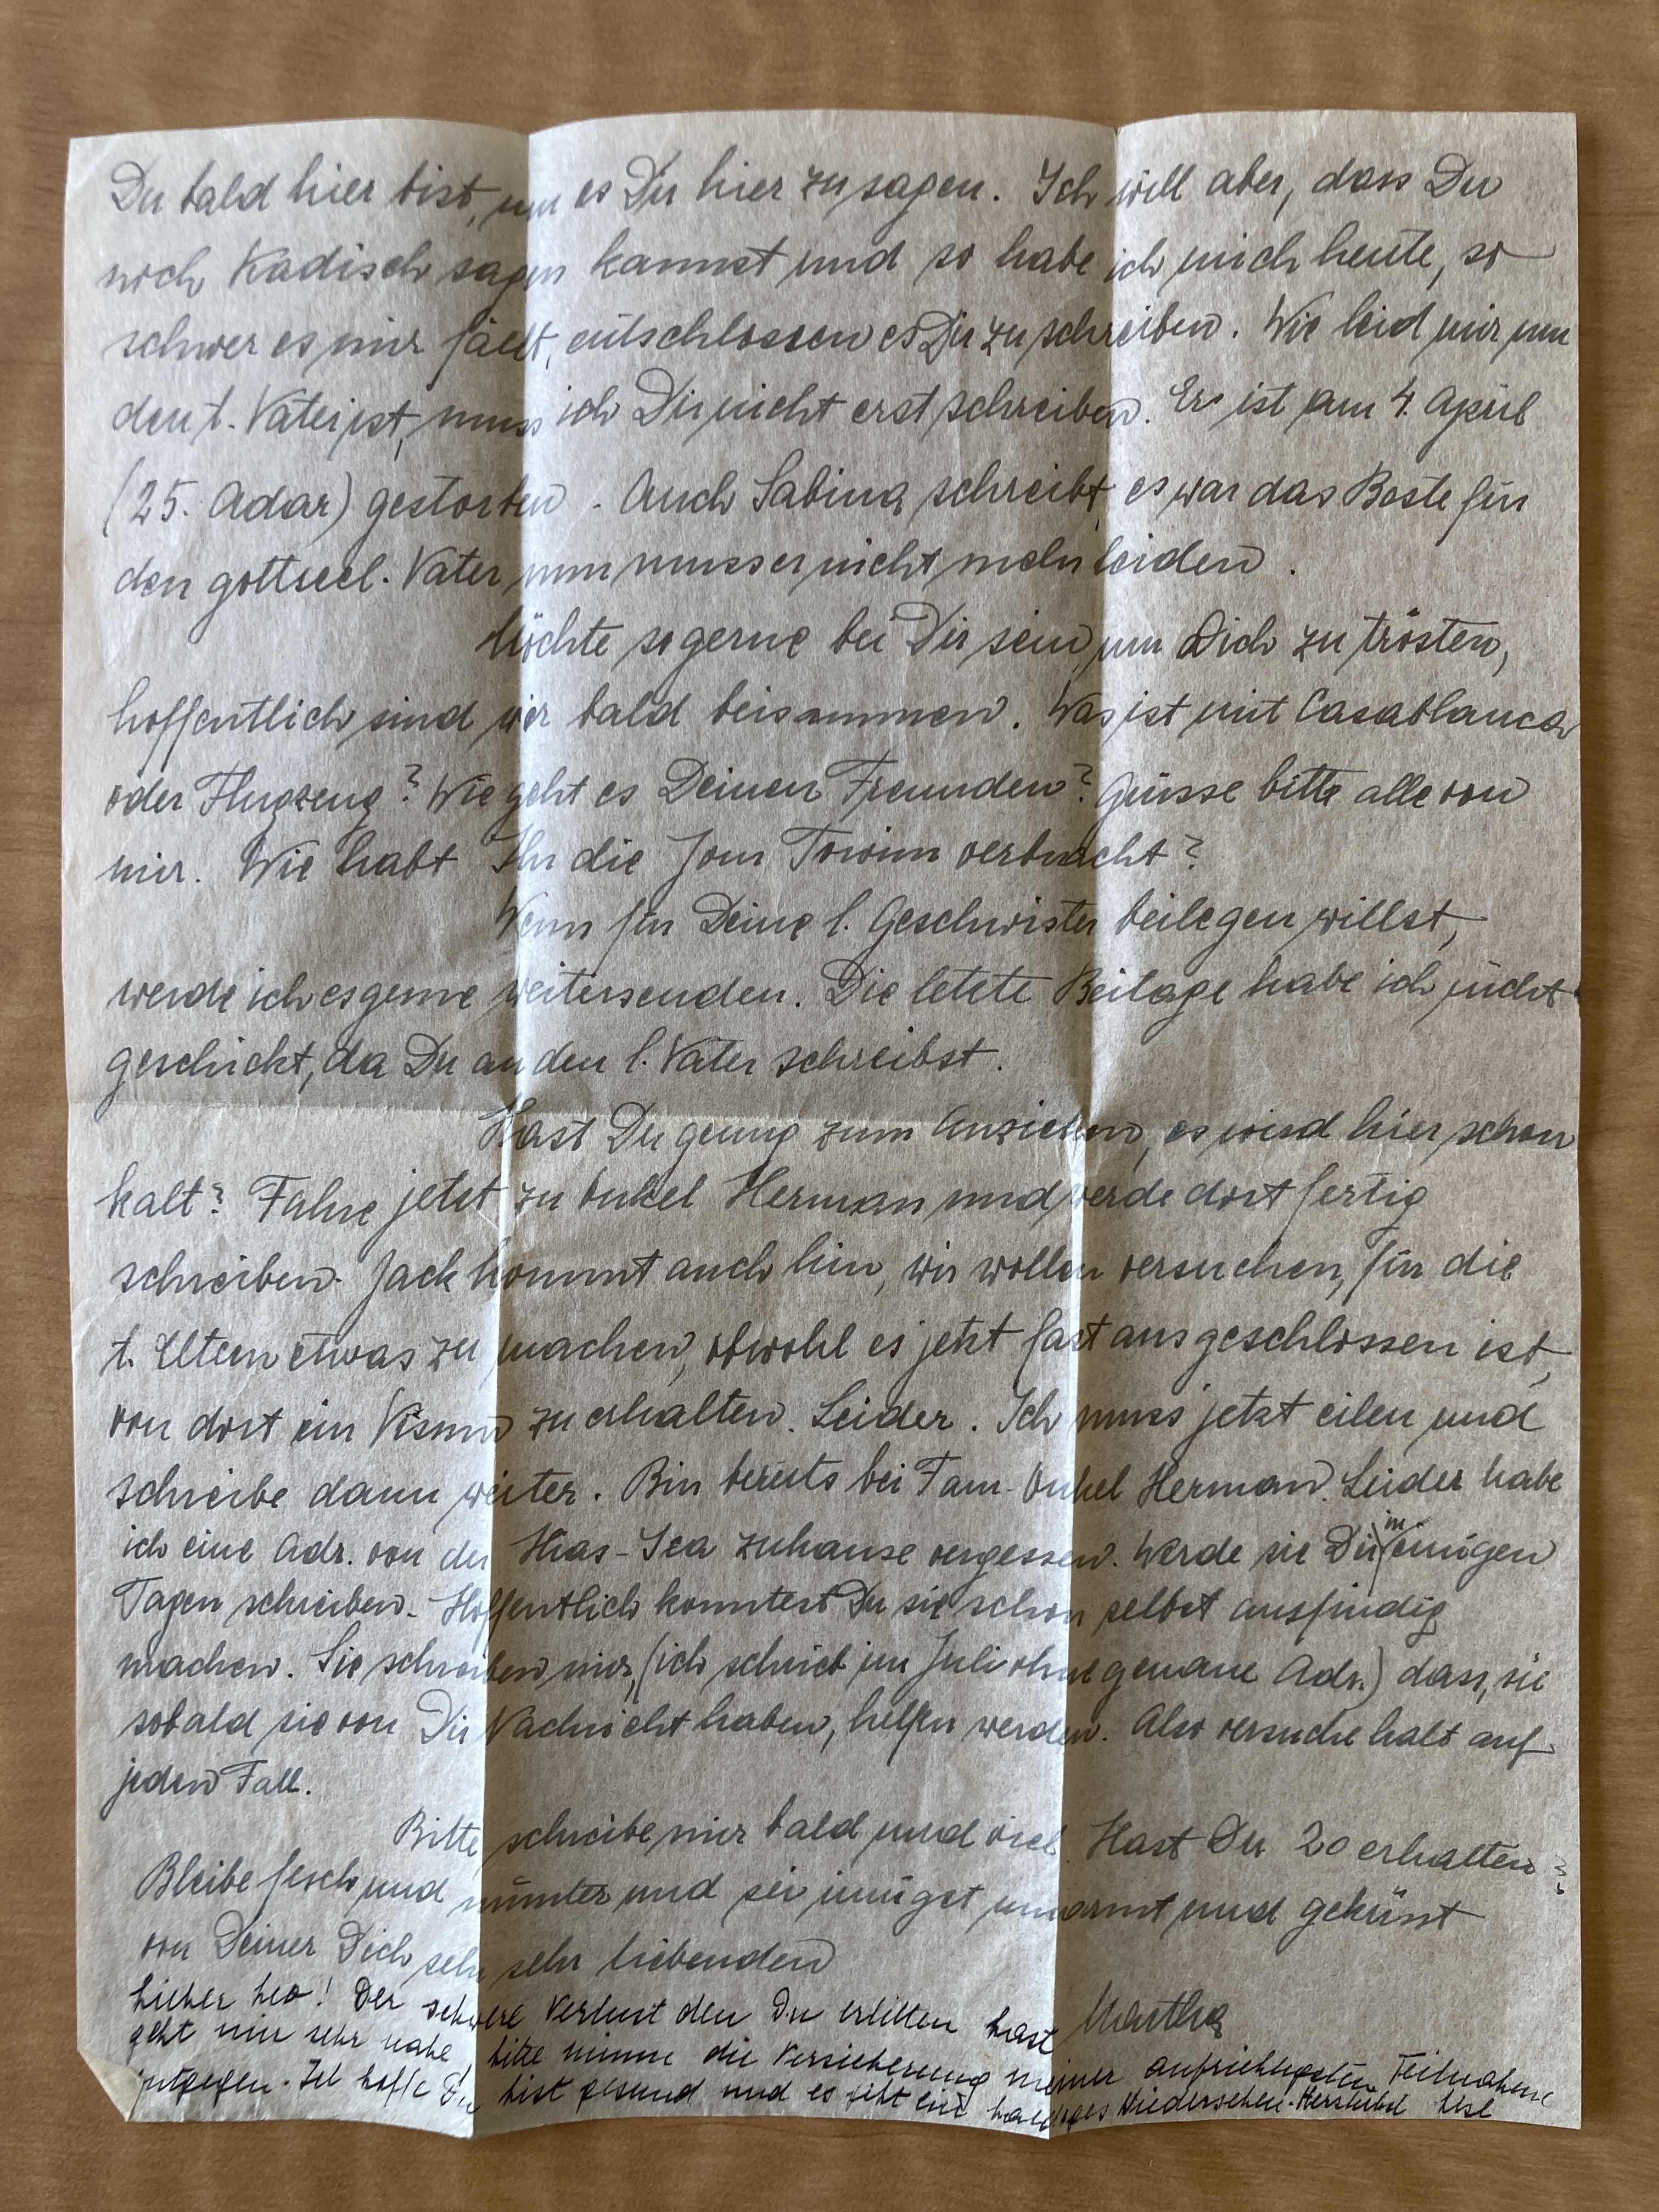 Du bald hier bist, um es Dir hier zu sagen. Ich will aber, dass Du
noch Kadisch sagen kannst und so habe ich mich heute, so
schwer es mir fällt, entschlossen es Dir zu schreiben. Wie leid mir um
den l. Vater ist, muss ich Dir nicht erst schreiben. Er ist am 4. April
(25. Adar) gestorben. Auch Sabina schreibt, es war das Beste für
den gottseel. Vater nun muss er nicht mehr leiden.
Möchte so gerne bei Dir sein, um Dich zu trösten,
hoffentlich sind wir bald beisammen. Was ist mit Casablanca
oder Flugzeug? Wie geht es Deinen Freunden? Grüsse bitte alle von
mir. Wie habt Ihr die Jom Towim verbracht?
Wenn für Deine l. Geschwister beilegen willst,
werde ich es gerne weitersenden. Die letzte Beilage habe ich nicht
geschickt, da Du an den l. Vater schreibst.
Hast Du genug zum Anziehen, es wird hier schon
kalt? Fahre jetzt zu Onkel Herman und werde dort fertig
schreiben. Jack kommt auch hin, wir wollen versuchen, für die
l. Eltern etwas zu machen, obwohl es jetzt fast ausgeschlossen ist,
von dort ein Visum zu erhalten. Leider. Ich muss jetzt eilen und
schreibe dann weiter. Bin bereits bei Fam. Onkel Herman. Leider habe
ich eine Adr. von der Hias-Ica zuhause vergessen. Werde sie Dir in einigen
Tagen schreiben. Hoffentlich konntest Du sie schon selbst ausfindig
machen. Sie schreiben mir, (ich schrieb im Juli ohne genaue Adr.) dass, sie
sobald sie von Dir Nachricht haben, helfen werden. Also versuche halt auf
jeden Fall.
Bitte schreibe mir bald und viel. Hast Du 20 erhalten?
Bleibe fesch und munter und sei innigst umarmt und geküsst
von Deiner Dich sehr sehr liebenden
Martha
Lieber Leo! Der schwere Verlust den Du erlitten hast
geht mir sehr nahe, bitte nimm die Versicherung meiner aufrichtigsten Teilnahme
entgegen. Ich hoffe Du bist gesund und es gibt ein baldiges Wiedersehen. Herzlichst